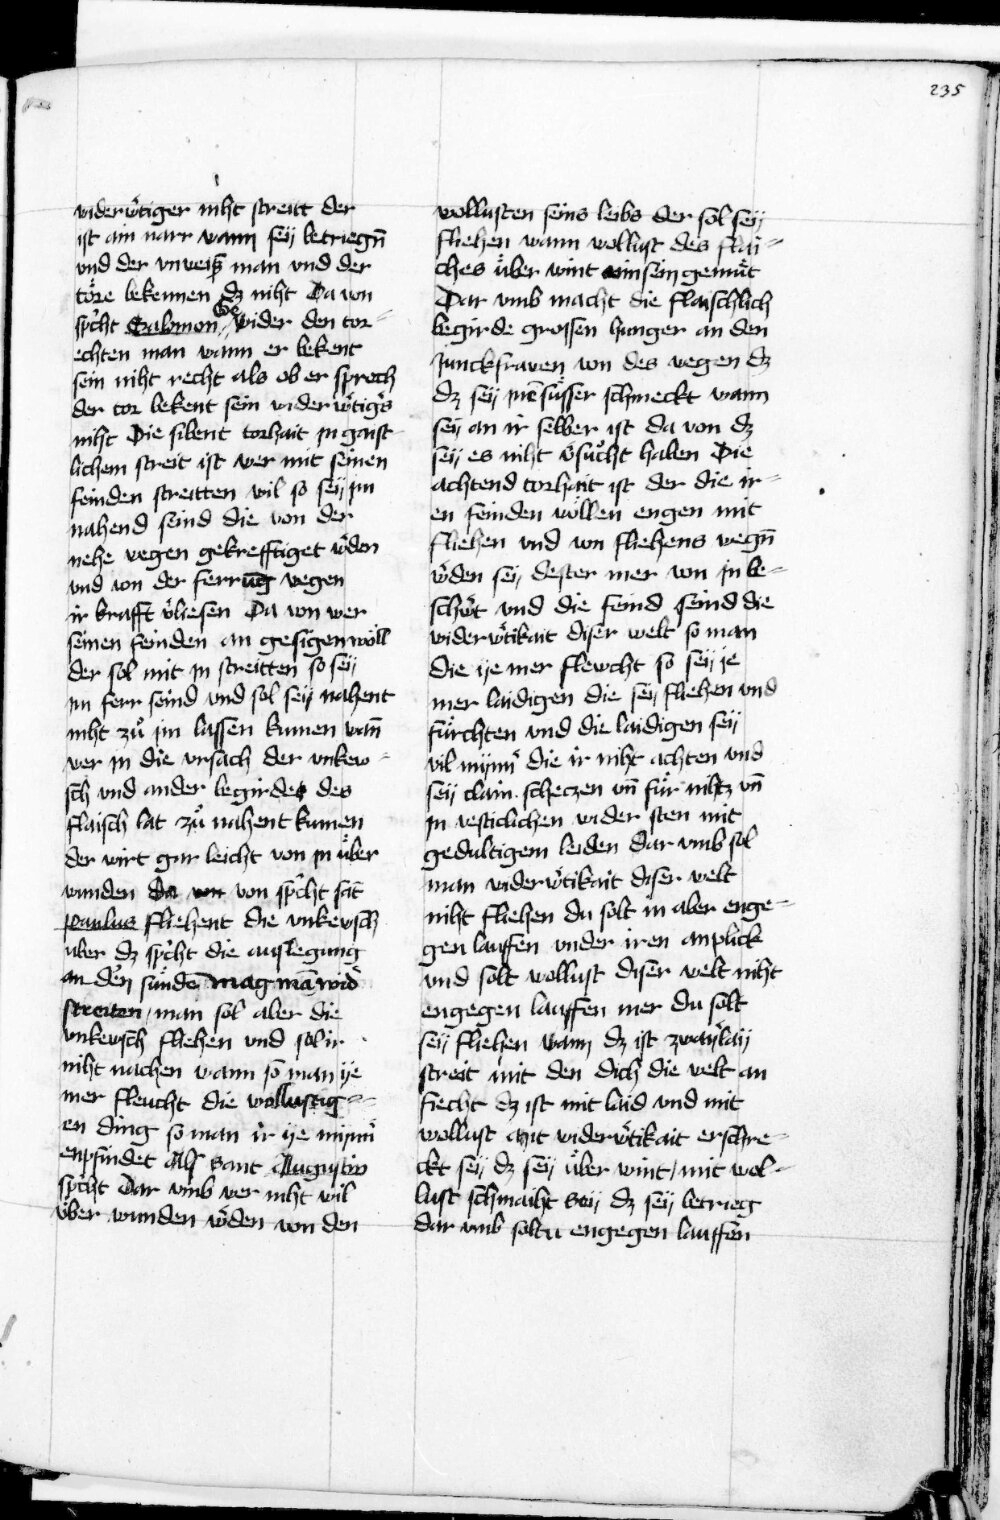 235
widerwͤtiger niht streitt der
ist ain narr wann seÿ betriegn̄
vnd der vnweiß man vnd der
toͤre bekennen dz niht Da von
spͨht Salomon wider den tor-
echten man wann er bekent
sein niht recht als ob er sproch
der tor bekent sein widerwͤtigs
niht Die sibent torhait in gaist-
lichem streit ist wer mit seinen
feinden streitten wil so seÿ im
nahend seind die von der
nehe wegen gekrefftiget wͤden
vnd von der ferrūg wegen
ir krafft v̓liesen Da von wer
seinen feinden an gesigen woͤll
der sol mit in streitten so seÿ
im ferr seind vnd sol seÿ nahent
niht zuͦ im lassen kumen wañ
wer in die vrsach der vnkew-
sch vnd ander begirdes des
flaisch lat zuͦ nahent kumen
der wirt gar leicht von in uͤber
wunden Da von von spͨht sāt
paulus fliehent die vnkewsch
uͤber dz spͨht die außlegung
an den suͤnden mag mā wid̓
streiten, man sol aber die
vnkewsch fliehen vnd sol ir
niht nachen wann so man ÿe
mer fleucht die wollustig-
en ding so man ir ÿe minn̓
enpfindet Als Sant Augustin
spͨht Dar vmb wer niht wil
uͤber wunden wͤden von den
wollusten seins leibs der sol seÿ
fliehen wann wollust des flai-
ches uͤber wint ain sein gemuͤt
Dar vmb macht die flaischlich
begirde grossen hunger an den
Junckfrawen von des wegen dz
dz seÿ in̄ suͤsser schmeckt wann
seÿ an ir selber ist da von dz
seÿ es niht v̓suͤcht haben Die
achtend torhait ist der die ir-
en feinden woͤllen engen mit
fliehen vnd von fliehens wegn̄
wͤden seÿ dester mer von in be-
schwͤt vnd die feind seind die
widerwͤtikait diser welt so man
die ÿe mer flewcht so seÿ ie
mer laidigen die seÿ fliehen vnd
fuͤrchten vnd die laidigen seÿ
vil minn̓ die ir niht achten vnd
seÿ clain scheczen vn̄ fuͤr nihtz vn̄
in vesticlichen wider sten mit
gedultigem leiden dar vmb sol
man widerwͤtikait diser welt
niht fliehen du solt in aber enge-
gen lauffen vnder iren anplick
vnd solt wollust diser welt niht
engegen lauffen mer du solt
seÿ fliehen wann dz ist zwaÿlaÿ
streit mit den dich die welt an
fiecht dz ist mit laid vnd mit
wollust mit widerwͤtikait erschre-
ckt seÿ dz seÿ uͤber wint, mit wol-
lust schmaiht seÿ dz seÿ betrieg
dar vmb soltu engegen lauffen